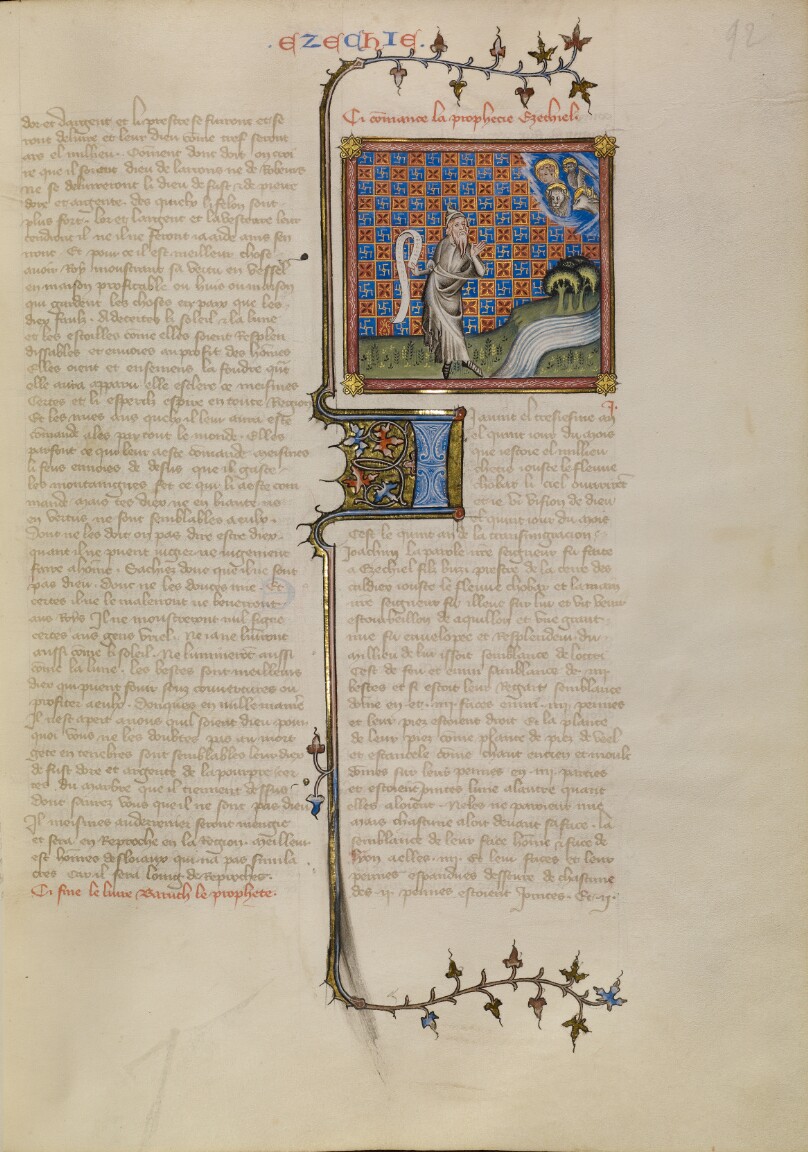 .EZECHIE.
92
dor et dargent et li prestre se furront et se
ront delivre et leur dieu come tref seront
ars el millieu. Coment dont doit on croi
re que il soient dieu de larrons ne de Robeurs
ne se deliverront li dieu de fust & de pierre
dore et argente. des quielx li felon sont
plus fort. lor et largent et la vesteure leur
tendront il ne il ne feront ia aide ains sen
iront. Et pour ce il est meilleur chose
avoir Roy monstrant sa vertu en vessel
en maison profitable ou huis ou maison
qui gardent les choses
diex faulx. Adecertes li soleil & la lune
et les estoilles come elles soient Resplen
dissables et envoies au profit des homes
Elles oient et ensement la foudre quant
elle aura apparu elle esclere ce meismes
Certes et li esperilz espire en toute Region
Et les nues aus quelx il leur aura este
comande aler par tout le monde. Elles
parfont ce que leur a este comande
li feus envoies de desus que il gaste
les montaingnes fet ce qui li a este com
mande. Mais tes diex ne en biaute ne
en vertus ne sont semblables a eulx.
Dont ne les doit on pas dire estre diex.
quant il ne puent iugier ne iugement
faire a home. Sachiez donc que il ne sont
pas dieu. Donc ne les doutes mie. Et
certes il ne le maleiront ne beneiront
aus Roys Il ne monstreront nul signe
certes aus gens
aussi come li soleil. Ne lumineront aussi
come la lune. les bestes sont meilleurs
diex qui puent fouir souz couvertures ou
profiter a eulx. Donques en nulle maniere
Il nest apert a nous quil soient dieu pour
quoi vous ne les doubtes pas
gete en tenebres sont semblables leur diex
de fust dore et argente de la pourpre
du marbre que il tiennent dessus
Dont saurez vous que il ne sont pas dieu
Il meismes au derrenier seront mengie
et sera en Reprouche en la Region. Meilleur
est homes qui na pas simila
cres car il sera loing de Reprouches.
Ci fine le livre Baruch le prophete.
Ci comance la prophecie Ezechiel.
I.
I lannee el tresiesme an
el quart iour du mois
que iestoie el millieu
iouste le fleuve
chobar li ciel
et ie vi vision de dieu
El quint iour du mois
Cest le quint an de la transmigracion
Joachim la parole nre seigneur fu faite
a Ezechiel filz buzi prestre de la terre des
caldiex iouste le fleuve chobar et la main
nre seigneur fu illeuc sur lui et vit venir
estourbeillon de aquillon et une grant
nue fu envelopee et Resplendeur
millieu de lui issoit semblance
Cest de feu et semblance de .iiii.
bestes et si estoit leur Regart semblance
dome en eux .iiii. faces .iiii. pennes
et leur piez estoient droit Et la plante
de leur piez come plante de piez de veel
et estancele come
domes sur leurs pennes en .iiii. parties
et estoient iointes lune a lautre quant
elles aloient. Nelles ne paroient mie
Mais chascune aloit devant sa face. la
semblance de leur face home & face de
lyon a elles .iiii. Et leur faces et leur
pennes espandues desseure de chascune
des .ii. pennes estoient iointes. Et .ii.